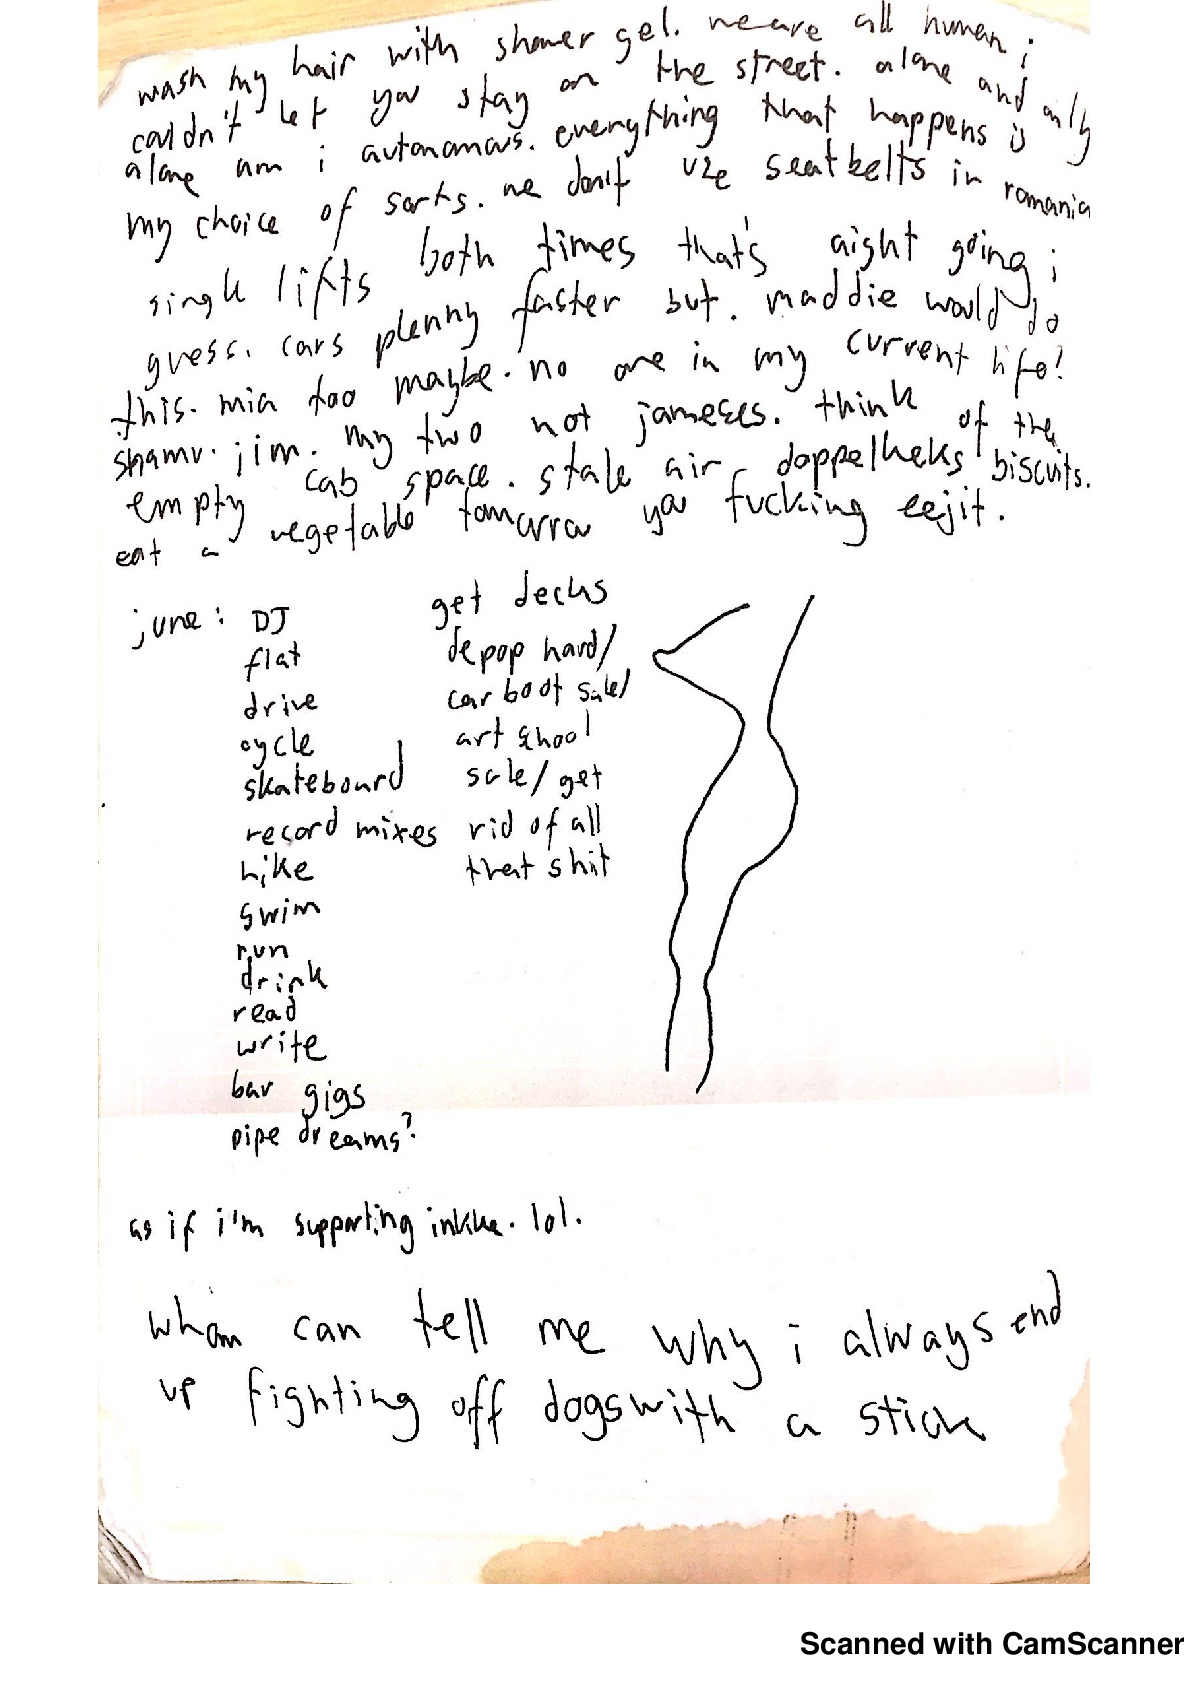 wash my hair with shower gel. we are all human i
couldn't let you stay on the street. alone and only
alone am i autonomous. everything that happens is
my choice of sorts. we don't use seatbelts in romania
single lifts both times that's aight going i
guess. cars plenny faster but. maddie would do
this. mia too maybe. no one in my current life?
shamu. jim. my two not jameses. think of the
empty cab space. stale air. doppelkeks biscuits.
eat a vegetable tomorrow you fucking eejit.
june: DJ
flat
drive
cycle
skateboard
record mixes
hike
swim
run
drink
read
write
bar gigs
pipe dreams?
get decks
depop hard/
car boot sale/
art school
sale/ get
rid of all
that shit
as if i'm supporting lol.
whom can tell me why i always end
up fighting off dogs with a stick
Scanned with CamScanner